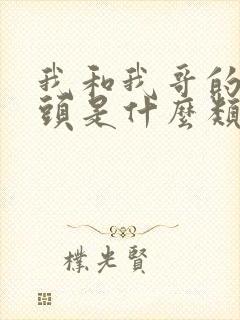 我和我哥的
頭是什麼類
樸光賢